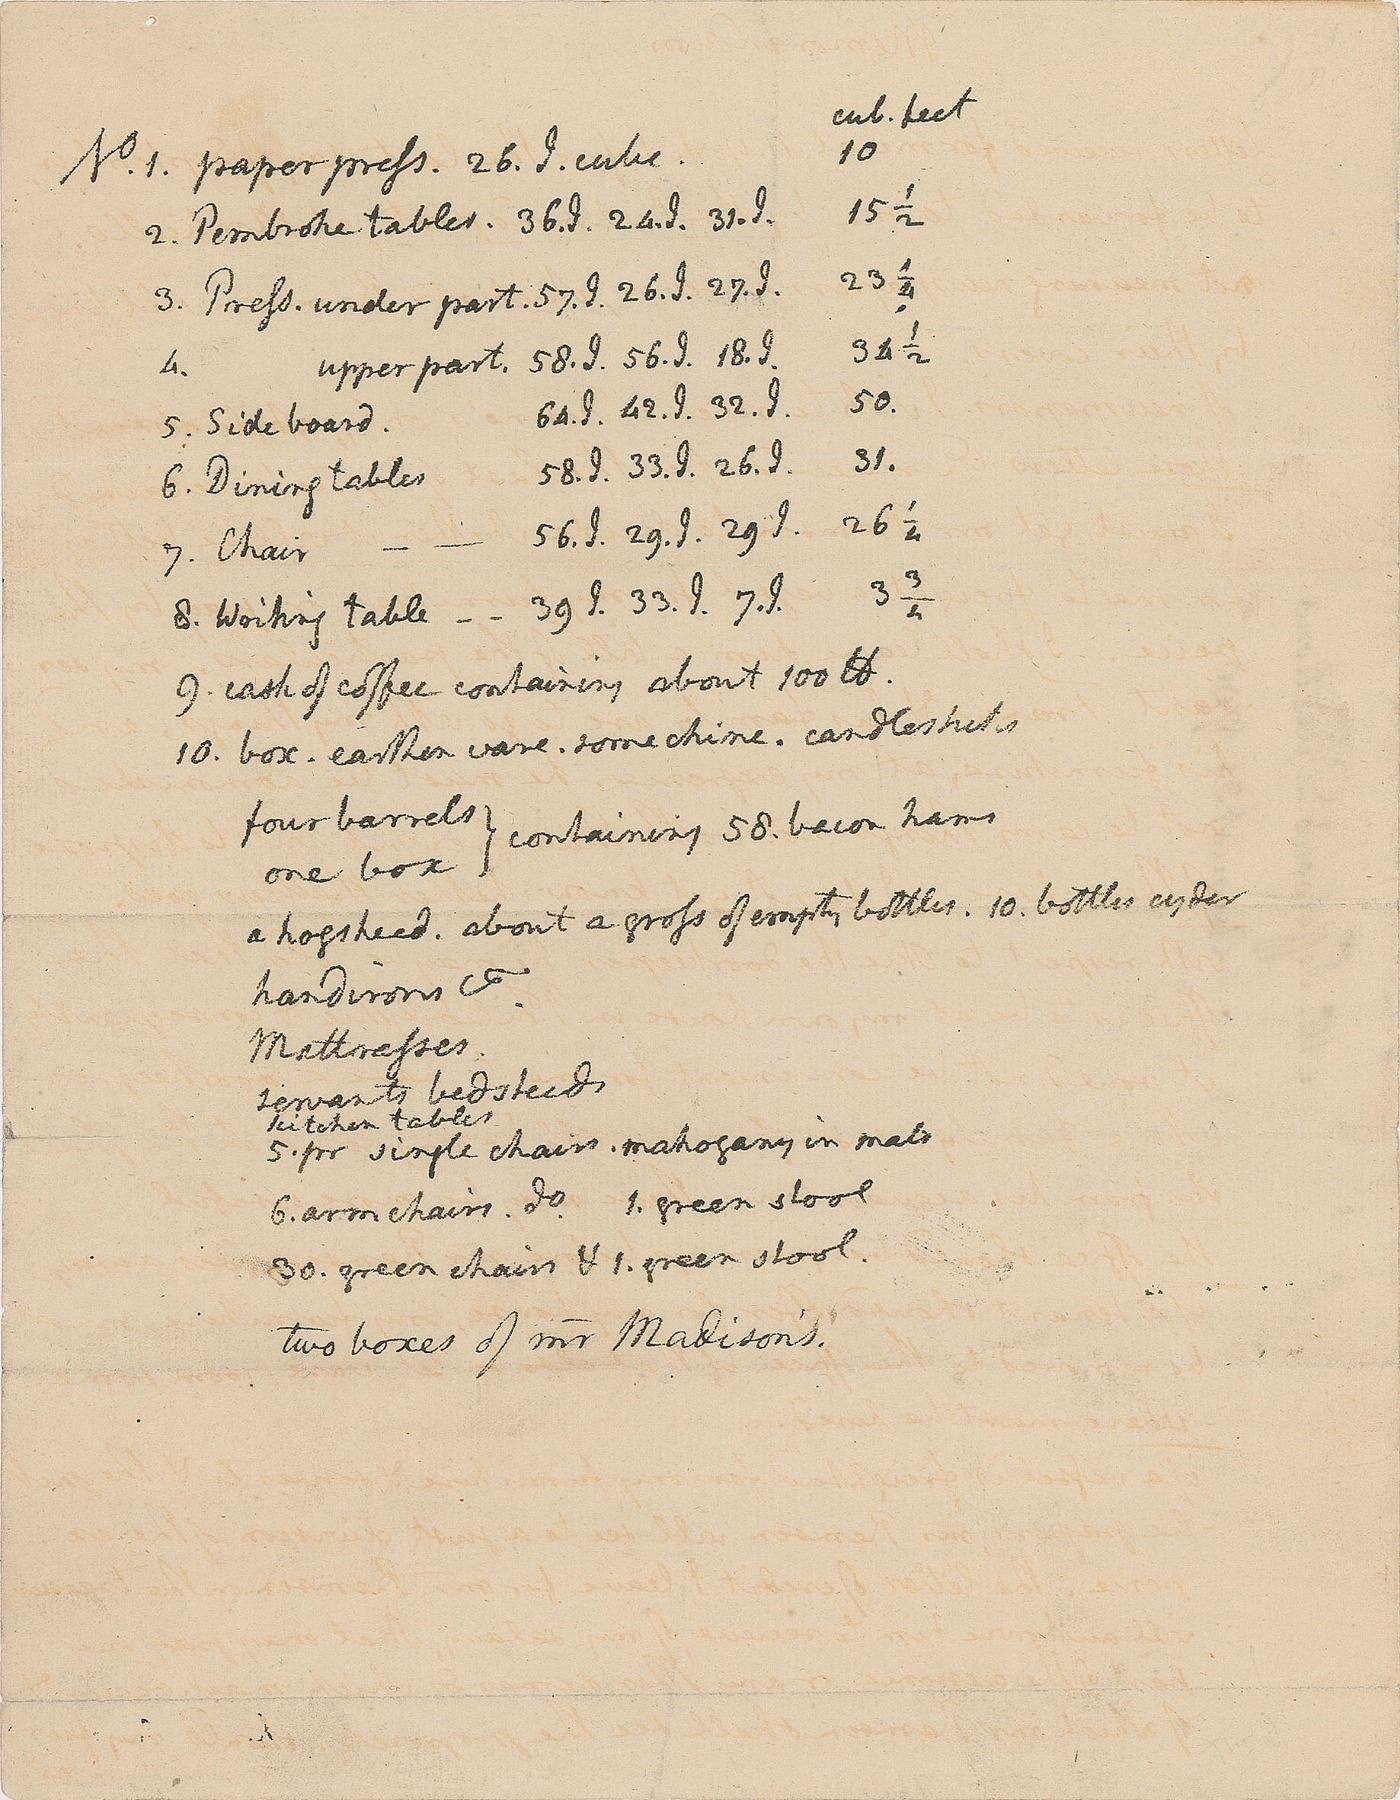 cub. feet
No. 1. paper press. 26. I. cube. 10
2. Pembroke tables. 36.I. 24.I. 31.I. 15 1/2
3. Press. under part. 57.I. 26.I. 27.I. 23 1/4
4. upper part. 58.I. 56.I. 18.I. 34 1/2
5. Side board. 64.I. 42.I. 32.I. 50.
6. Dining tables 58.I. 33.I. 26.I. 31.
7. Chair — — 56.I. 29.I. 29 I. 26 1/4
8. Writing table - - 39 I. 33. I. 7.I. 3 3/4
9. cask of coffee containing about 100 lb.
10. box. earthen ware. some chine. candlesticks
four barrels } containing 58. bacon hams
one box
a hogshead. about a gross of empty bottles. 10. bottles cyder
handirons &c.
Mattresses.
servants bedsteads
kitchen tables
5. pr single chairs. mahogany in mats
6. arm chairs. do. 1. green stool
30. green chairs & 1. green stool.
two boxes of mr Madison's.